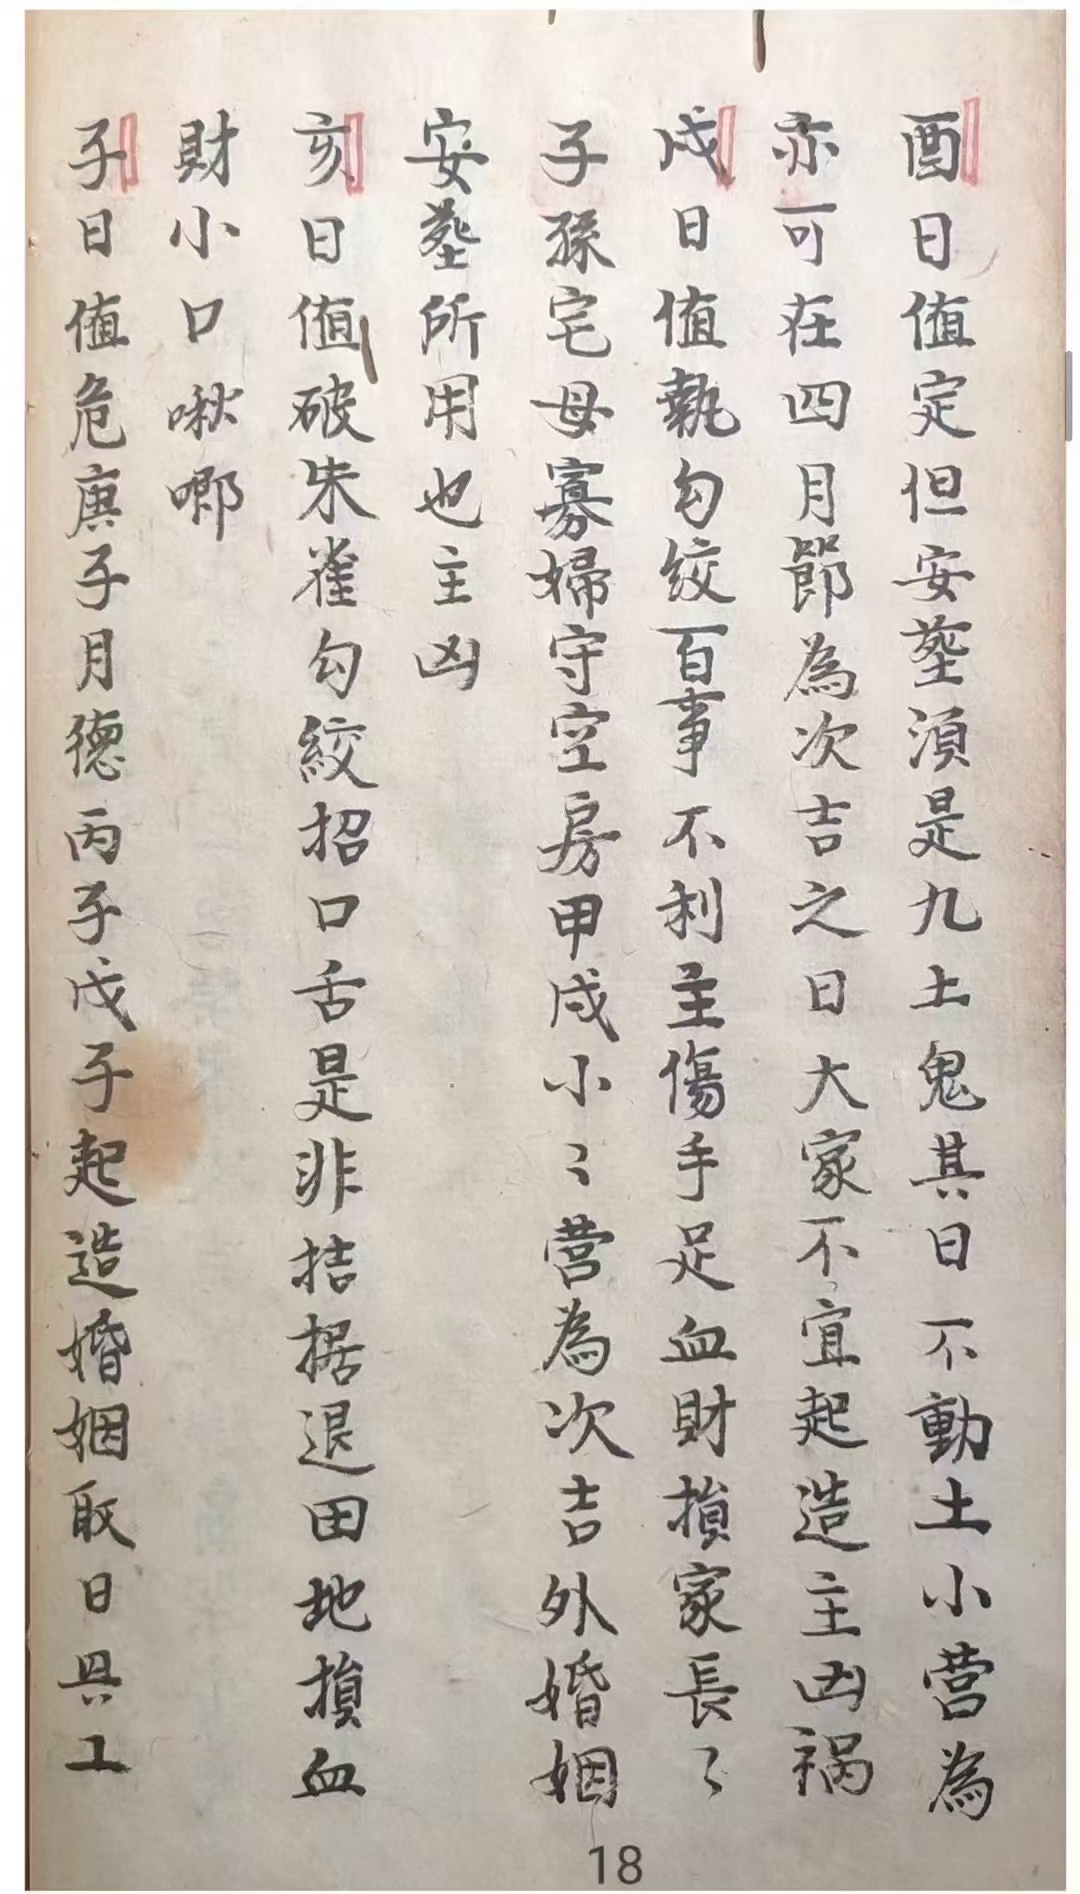 酉日值定但安葬須是九土鬼其日不動土小营為
亦可在四月節為次吉之日大家不宜起造主凶祸
戌日值執勾絞百事不利主傷手足血財損家長〻
子孫宅母寡婦守空房甲戌小〻营為次吉外婚姻
安葬所用也主凶
亥日值破朱雀勾絞招口舌是非拮据退田地損血
財小口啾唧
子日值危庚子月德丙子戊子起造婚姻取日具工
18